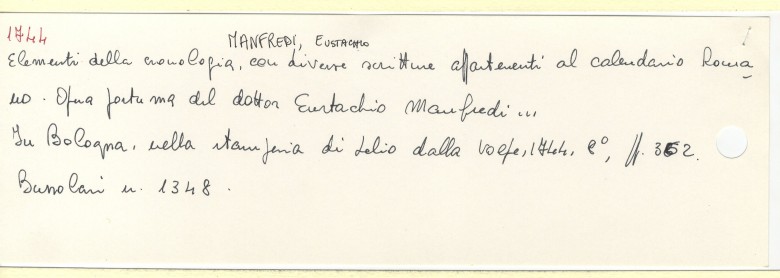 1744
MANFREDI, EUSTACHIO
Elementi della cronologia, con diverse scritture appartenenti al calendario Roma
no. Opera postuma del dottor Eustachio Manfredi...
In Bologna, nella stamperia di Lelio dalla Volpe, 1744, 8°, pp. 352.
Bussolari n. 1348.